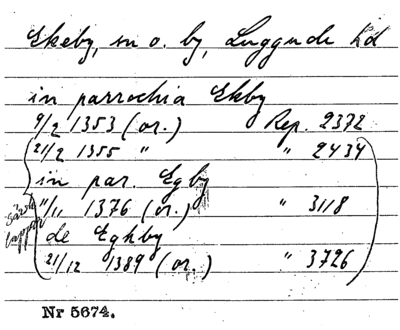 Ekeby, sn o. by, Luggude hd
in parrochia Ekby
9/2 1353 (or.) Rep. 2372
21/2 1355 " " 2434
in par. Egby
"/11 1376 (or.) " 3118
särsk. lappar
de Eghby
21/12 1389 (or.) " 3726
Nr 5674.